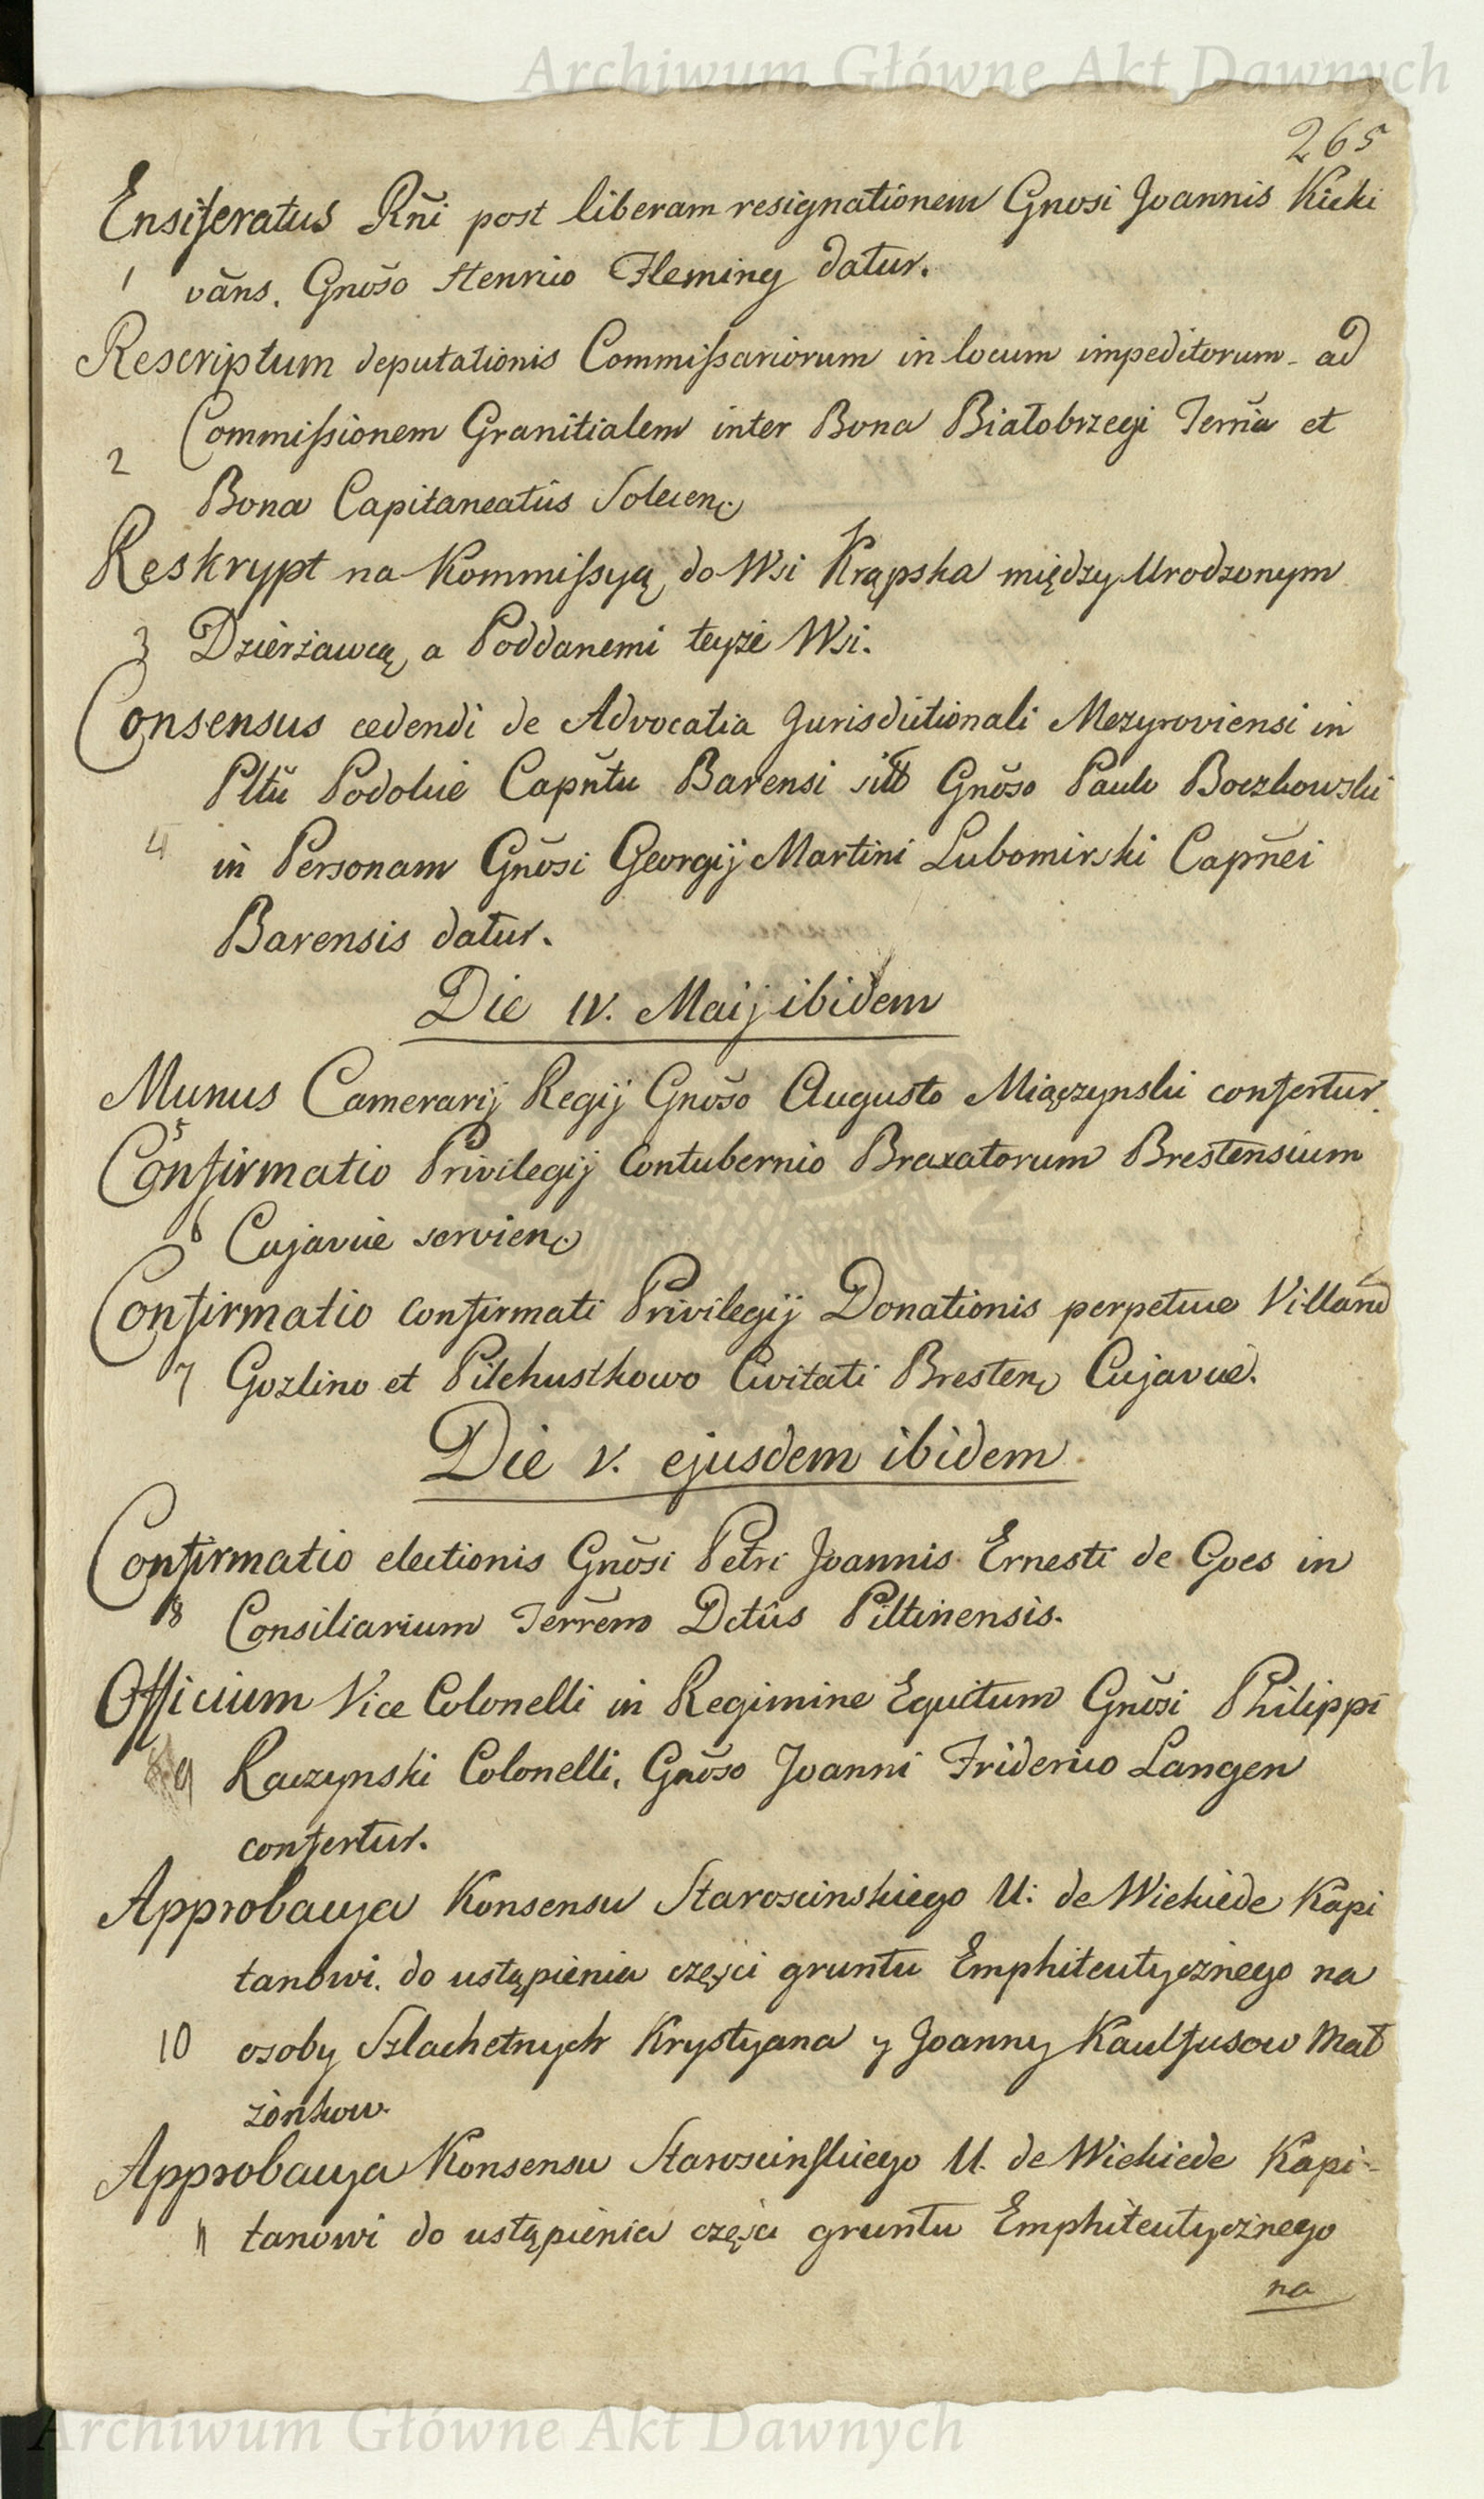 Archiwum Główne Akt Dawnych
265
Ensiferatus Rñi post liberam resignationem Gnosi Joannis Kicki
1 vãns. Gnõso Henrico Fleming datur.
Rescriptum deputationis Commissariorum in locum impeditorum ad
Commissionem Granitialem inter Bona Białobrzegi Terña et
2
Bona Capitaneatûs Solecen
Reskrypt na Kommissyą do Wsi Krąpska między Urodzonym
3 Dzierżawcą a Poddanemi teyże Wsi.
Consensus cedendi de Advocatia Jurisdictionali Mezyroviensi in
Pltũ Podoliæ Capñtu Barensi Gnõso Paulo Boczkowski
4 in Personam Gnõsi Georgij Martini Lubomirski Capñei
Barensis datur.
Die IV. Maij ibidem
Munus Camerarij Regij Gnõso Augusto Miączynski confertur.
5
Confirmatio Privilegij Contubernio Braxatorum Brestensium
6 Cujaviæ servien
Confirmatio confirmati Privilegij Donationis perpetuæ Villarũ
7 Gozlino et Pilchustkowo Civitati Bresten Cujaviæ.
Die V. ejusdem ibidem
Confirmatio electionis Gnõsi Petri Joannis Ernesti de Goes in
8 Consiliarium Terrem Dctûs Piltinensis.
Officium Vice Colonelli in Regimine Equitum Gnõsi Philippi
9 Raczynski Colonelli, Gnõso Joanni Friderico Langen
confertur.
Approbacya Konsensu Staroscinskiego U: de Wickiede Kapi
tanowi. do ustąpienia części gruntu Emphiteutycznego na
10 osoby Szlachetnych Krystyana y Joanny Kaulfusow Mał
żonkow.
Approbacya Konsensu Staroscinskiego U. de Wickiede Kapi-
11 tanowi do ustąpienia części gruntu Emphiteutycznego
na
Archiwum Główne Akt Dawnych